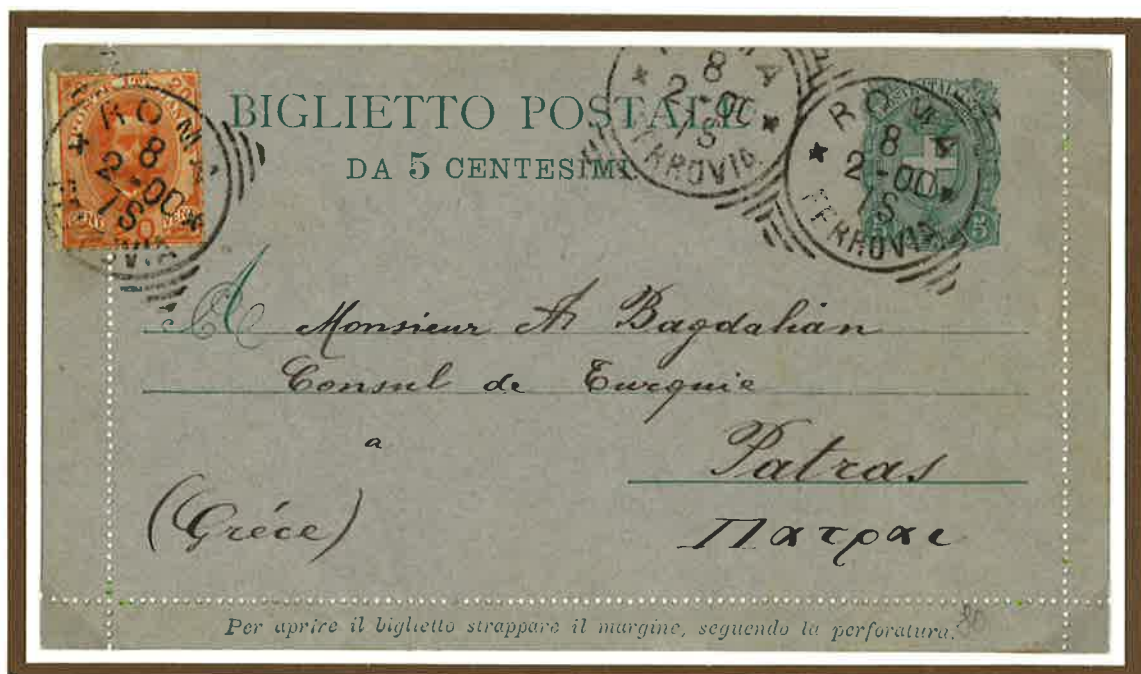 BIGLIETTO POSTALE
DA 5 CENTESIMI
ROMA
8
2-00
1S
FERROVIA
ROMA
8
2-00
1S
FERROVIA
ROMA
8
2-00
1S
FERROVIA
20
5
A Monsieur A Bagdalian
Consul de Turquie
a
Patras
(Gréce)
Πατραι
Per aprire il biglietto strappare il margine, seguendo la perforatura.
80